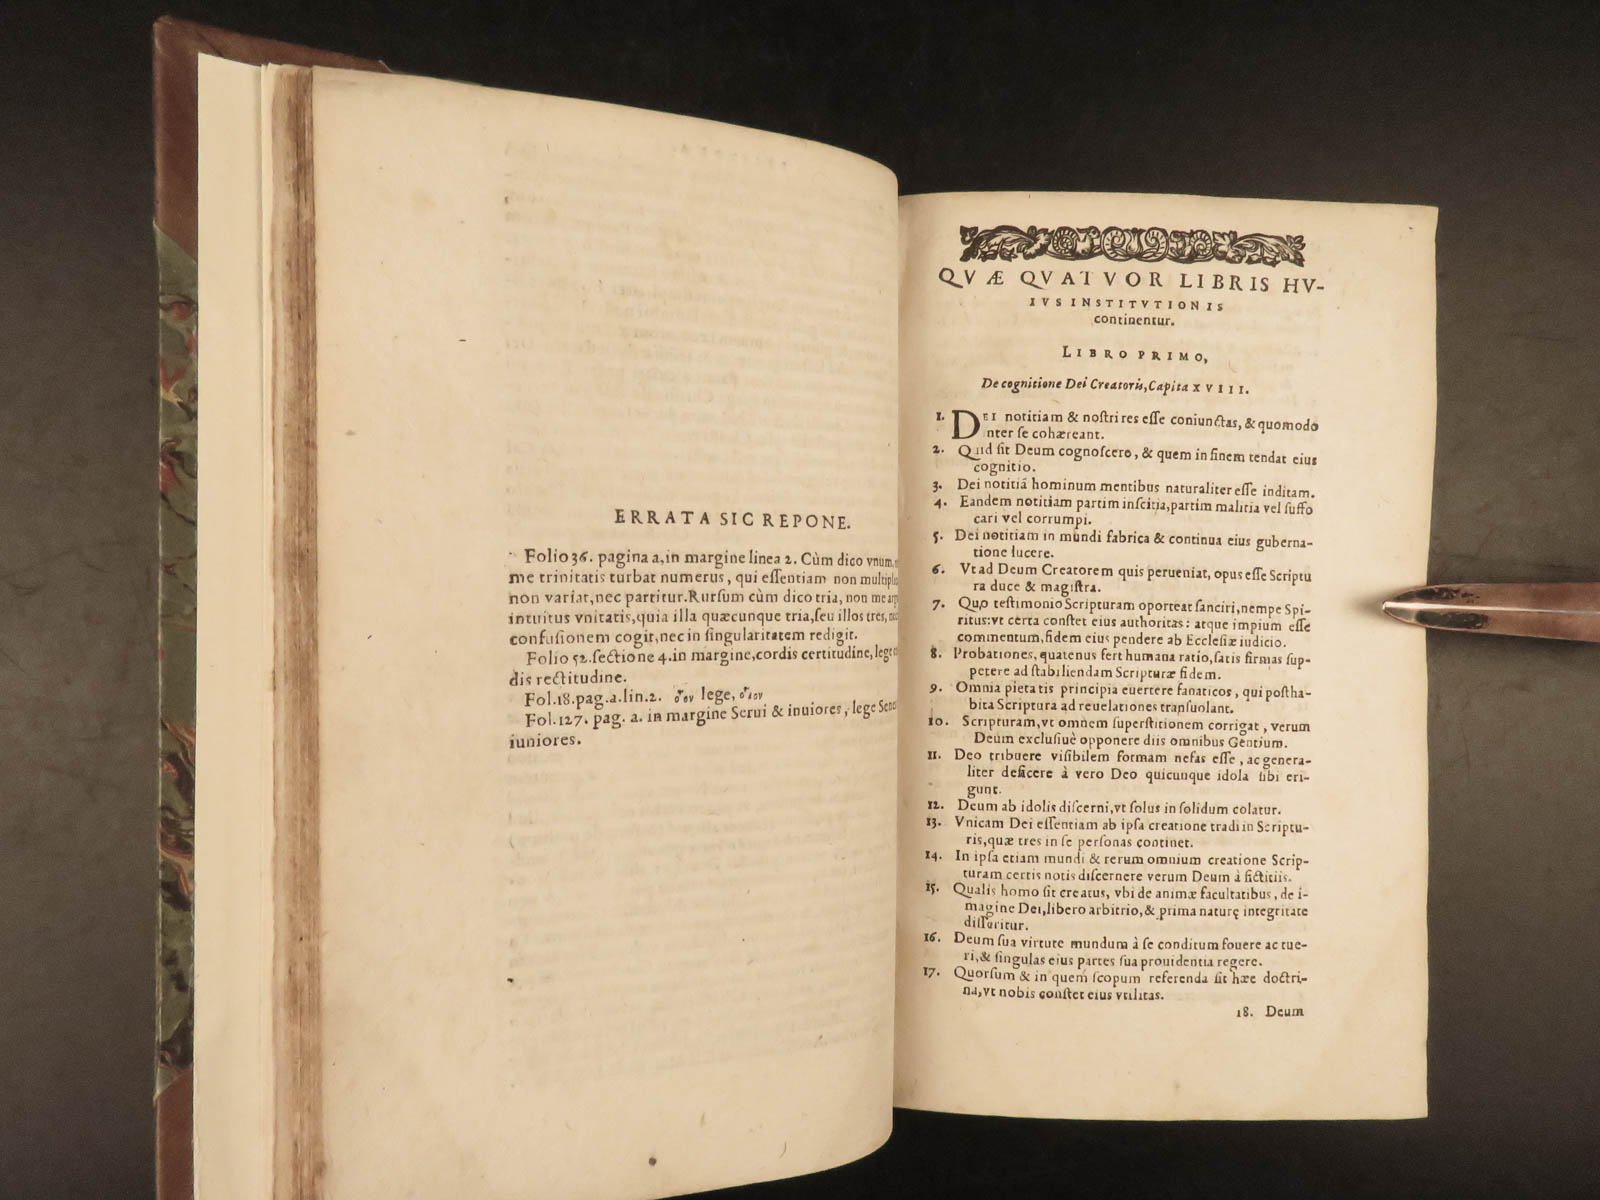 ERRATA SIC REPONE.
Folio 36. pagina a, in margine linea 2. Cùm dico vnum,
me trinitatis turbat numerus, qui essentiam non multipli
non variat, nec partitur. Rursum cùm dico tria, non me
intuitus vnitatis, quia illa quæcunque tria, seu illos tres,
confusionem cogit, nec in singularitatem redigit.
Folio 52. sectione 4. in margine, cordis certitudine, lege
dis rectitudine.
Fol. 18. pag. a. lin. 2. lege,
Fol. 127. pag. a. in margine Serui & inuiores, lege
iuniores.
QVÆ QVATVOR LIBRIS HV-
IVS INSTITVTIONIS
continentur.
LIBRO PRIMO,
De cognitione Dei Creatoris, Capita XVIII.
1. DEI notitiam & nostri res esse coniunctas, & quomodo
inter se cohæreant.
2. Quid sit Deum cognoscere, & quem in finem tendat eius
cognitio.
3. Dei notitiã hominum mentibus naturaliter esse inditam.
4. Eandem notitiam partim inscitia, partim malitia vel suffo
cari vel corrumpi.
5. Dei notitiam in mundi fabrica & continua eius guberna-
tione lucere.
6. Vt ad Deum Creatorem quis perueniat, opus esse Scriptu
ra duce & magistra.
7. Quo testimonio Scripturam oporteat sanciri, nempe Spi-
ritus: vt certa constet eius authoritas: atque impium esse
commentum, fidem eius pendere ab Ecclesiæ iudicio.
8. Probationes, quatenus fert humana ratio, satis firmas sup-
petere ad stabiliendam Scripturæ fidem.
9. Omnia pietatis principia euertere fanaticos, qui postha-
bita Scriptura ad reuelationes transuolant.
10. Scripturam, vt omnem superstitionem corrigat, verum
Deum exclusiuè opponere diis omnibus Gentium.
11. Deo tribuere visibilem formam nefas esse, ac genera-
liter deficere à vero Deo quicunque idola sibi eri-
gunt.
12. Deum ab idolis discerni, vt solus in solidum colatur.
13. Vnicam Dei essentiam ab ipsa creatione tradi in Scriptu-
ris, quæ tres in se personas continet.
14. In ipsa etiam mundi & rerum omnium creatione Scrip-
turam certis notis discernere verum Deum à fictitiis.
15. Qualis homo sit creatus, vbi de animæ facultatibus, de i-
magine Dei, libero arbitrio, & prima naturę integritate
disseritur.
16. Deum sua virtute mundum à se conditum fouere ac tue-
ri, & singulas eius partes sua prouidentia regere.
17. Quorsum & in quem scopum referenda sit hæc doctri-
na, vt nobis constet eius vtilitas.
18. Deum